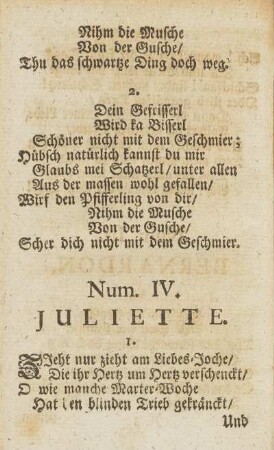 Nihm die Musche
Von der Gusche/
Thu das schwartze Ding doch weg.
2.
Dein Gefrisserl
Wird ka Bisserl
Schöner nicht mit dem Geschmier;
Hübsch natürlich kannst du mir
Glaubs mei Schatzerl/unter allen
Aus der massen wohl gefallen/
Wirf den Pfifferling von dir/
Nihm die Musche
Von der Gusche/
Scher dich nicht mit dem Geschmier.
Num. IV.
JULIETTE.
1.
ZIeht nur zieht am Liebes-Joche/
Die ihr Hertz um Hertz verschenckt/
O wie manche Marter-Woche
Hat den blinden Trieb gekränckt/
Und